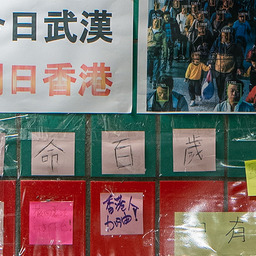 今日武漢
明日香港
命 百 歲
香港人
加油
有